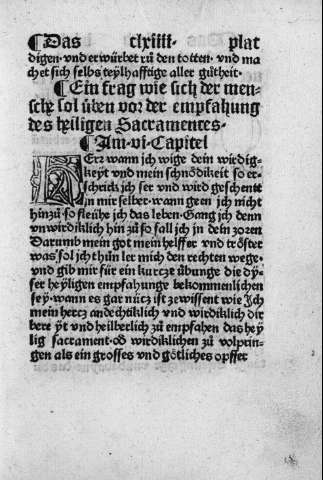 ¶Das clxiiii. plat
digen. vnd erwürbet rů den totten. vnd ma
chet sich selbs teylhafftige aller gůtheit.
¶Ein frag wie sich der men-
sche sol üben vor der empfahung
des heiligen Sacramentes.
¶Am .vi. Capitel
HErz wann jch wige dein wirdig-
keyt vnd mein schnödikeit so er-
schrick jch ser vnd wird geschent
in mir selber. wann geen jch nicht
hinzů. so fleühe jch das leben. Gang jch denn
vnwirdiklich hin zů so fall jch in dein zoren
Darumb mein got mein helffer vnd tröster
was sol jch thůn ler mich den rechten wege.
vnd gib mir für ein kurcze übunge die dy-
ser heyligen empfahunge bekommenlichen
sey. wann es gar nücz ist zewissent wie Jch
mein hercz andechtiklich vnd wirdiklich dir
bere yt vnd heilberlich zů empfahen das hey
lig sacrament. od wirdiklichen zů volprin-
gen als ein grosses vnd götliches opffer